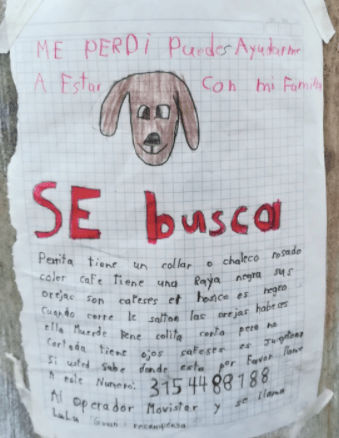 ME PERDI Puedes Ayudarme
A Estar Con mi Familia
SE busca
Perrita tiene un collar o chaleco rosado
color cafe tiene una Raya negra sus
orejas son cafeses el hosico es negro
cuando corre le saltan las orejas habeses
ella muerde tiene colita corta pero no
Cortada tiene ojos cafeses es Juguetona
Si usted sabe donde esta por Favor llame
A este Numero: 3154488188
Al operador Movistar y se llama
Gran recompensa